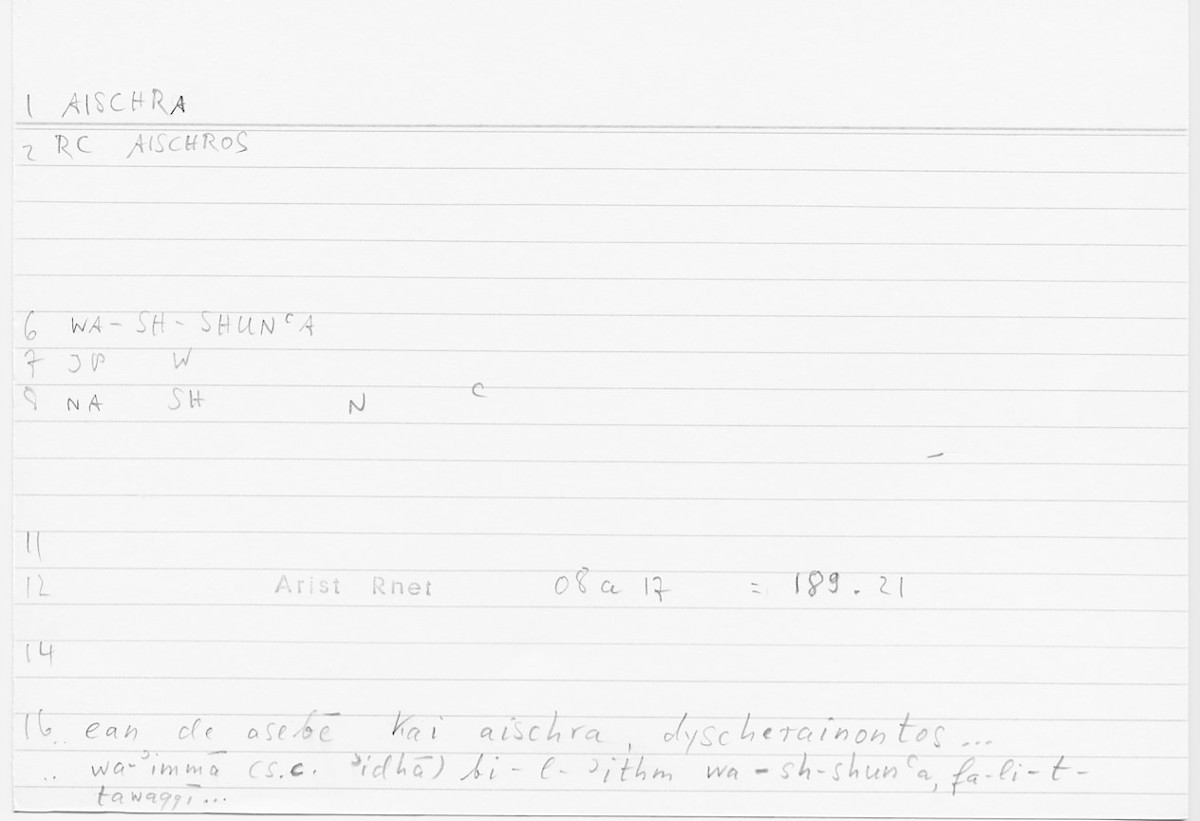 1 AISCHRA
2 RC AISCHROS
6 WA-SH-SHUNᶜA
7 JP W
8 NA SH N C
11
12 Arist Rhet 08a17 = 189.21
14
16.. ean de asebē kai aischra, dyscherainontos...
.. wa-ʾimmā (s.c. ʾidhā) bi-l-ʾithm wa-sh-shunᶜa, fa-li-t-
tawaqqī...